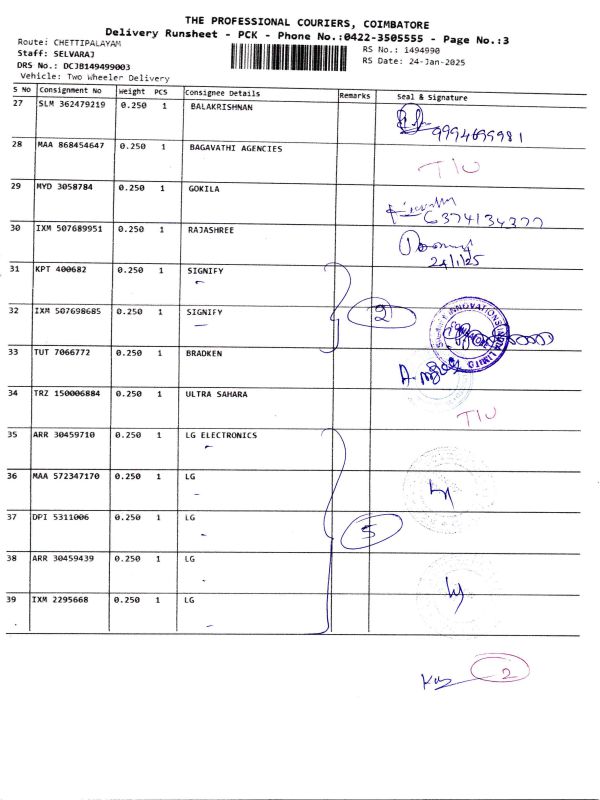 THE PROFESSIONAL COURIERS, COIMBATORE
Delivery Runsheet - PCK - Phone No.:0422-3505555 - Page No.:3
Route: CHETTIPALAYAM
Staff: SELVARAJ
DRS No.: DCJB149499003
Vehicle: Two Wheeler Delivery
RS No.: 1494990
RS Date: 24-Jan-2025
S No Consignment No Weight PCS Consignee Details Remarks Seal & Signature
27 SLM 362479219 0.250 1 BALAKRISHNAN
9994699981
28 MAA 868454647 0.250 1 BAGAVATHI AGENCIES
TIU
29 MYD 3058784 0.250 1 GOKILA
6374134377
30 IXM 507689951 0.250 1 RAJASHREE
24/1/25
31 KPT 400682 0.250 1 SIGNIFY
32 IXM 507698685 0.250 1 SIGNIFY
2
33 TUT 7066772 0.250 1 BRADKEN
34 TRZ 150006884 0.250 1 ULTRA SAHARA
TIU
35 ARR 30459710 0.250 1 LG ELECTRONICS
36 MAA 572347170 0.250 1 LG
37 DPI 5311006 0.250 1 LG
5
38 ARR 30459439 0.250 1 LG
39 IXM 2295668 0.250 1 LG
2